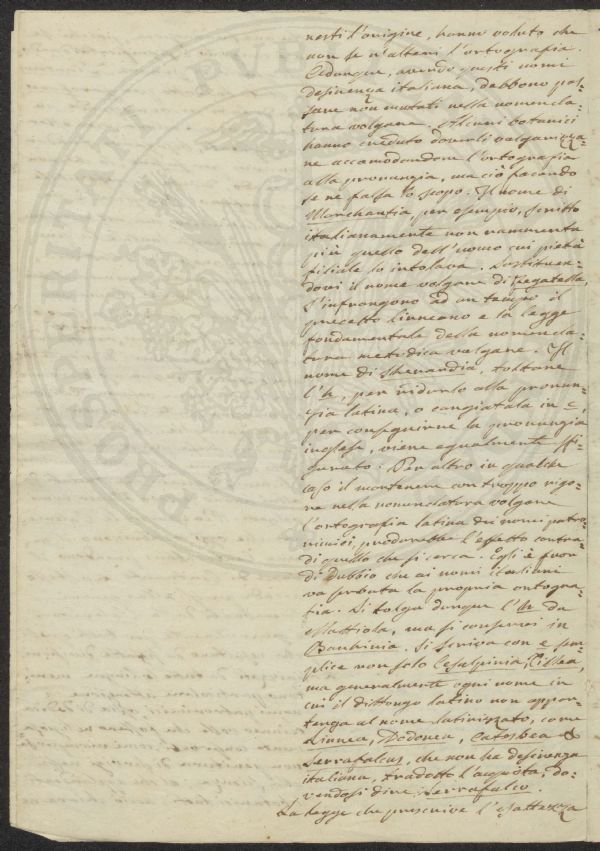 nesti l'origine, hanno voluto che
non se n'alteri l'ortografia.
Adunque, avendo questi nomi
desinenza italiana, debbono pas=
sare non mutati nella nomencla=
tura volgare. Alcuni botanici
hanno creduto doverli volgarizza=
re accomodandone l'ortografia
alla pronunzia, ma ciò facendo
se ne falsa lo scopo. Il nome di
Marchantia per esempio, scritto
italianamente non rammenta
più quello dell'uomo cui pietà
filiale lo intolava. Sostituen=
dovi il nome volgare di Fegatella,
s'infrangono ad un tempo il
precetto Linneano e la legge
fondamentale della nomencla=
tura metodica volgare. Il
nome di Sherardia, toltone
l'h, per ridurlo alla pronun=
zia latina, o cangiatala in c,
per conseguirne la pronunzia
inglese, viene egualmente sfi=
gurato. Per altro in qualche
caso il mantenere con troppo rigo=
re nella nomenclatura volgare
l'ortografia latina dei nomi patro=
nimici, produrrebbe l'effetto contra=
di quello che si cerca. Egli è fuor
di dubbio che ai nomi italiani
va serbata la propria ortogra=
fia. Si tolga dunque l'h da
Matthiola, ma si conservi in
Bauhinia. Si scriva con e sem=
plice non solo Cesalpinia,
ma generalmente ogni nome in
cui il dittongo latino non appar=
tenga al nome latinizzato, come
Linnea, Dodonea, Catesbea &
Serrafalcus, che non ha desinenza
italiana, tradotto l'acquista, do=
vendosi dire, Serrafalco.
La legge che prescrive l'esattezza